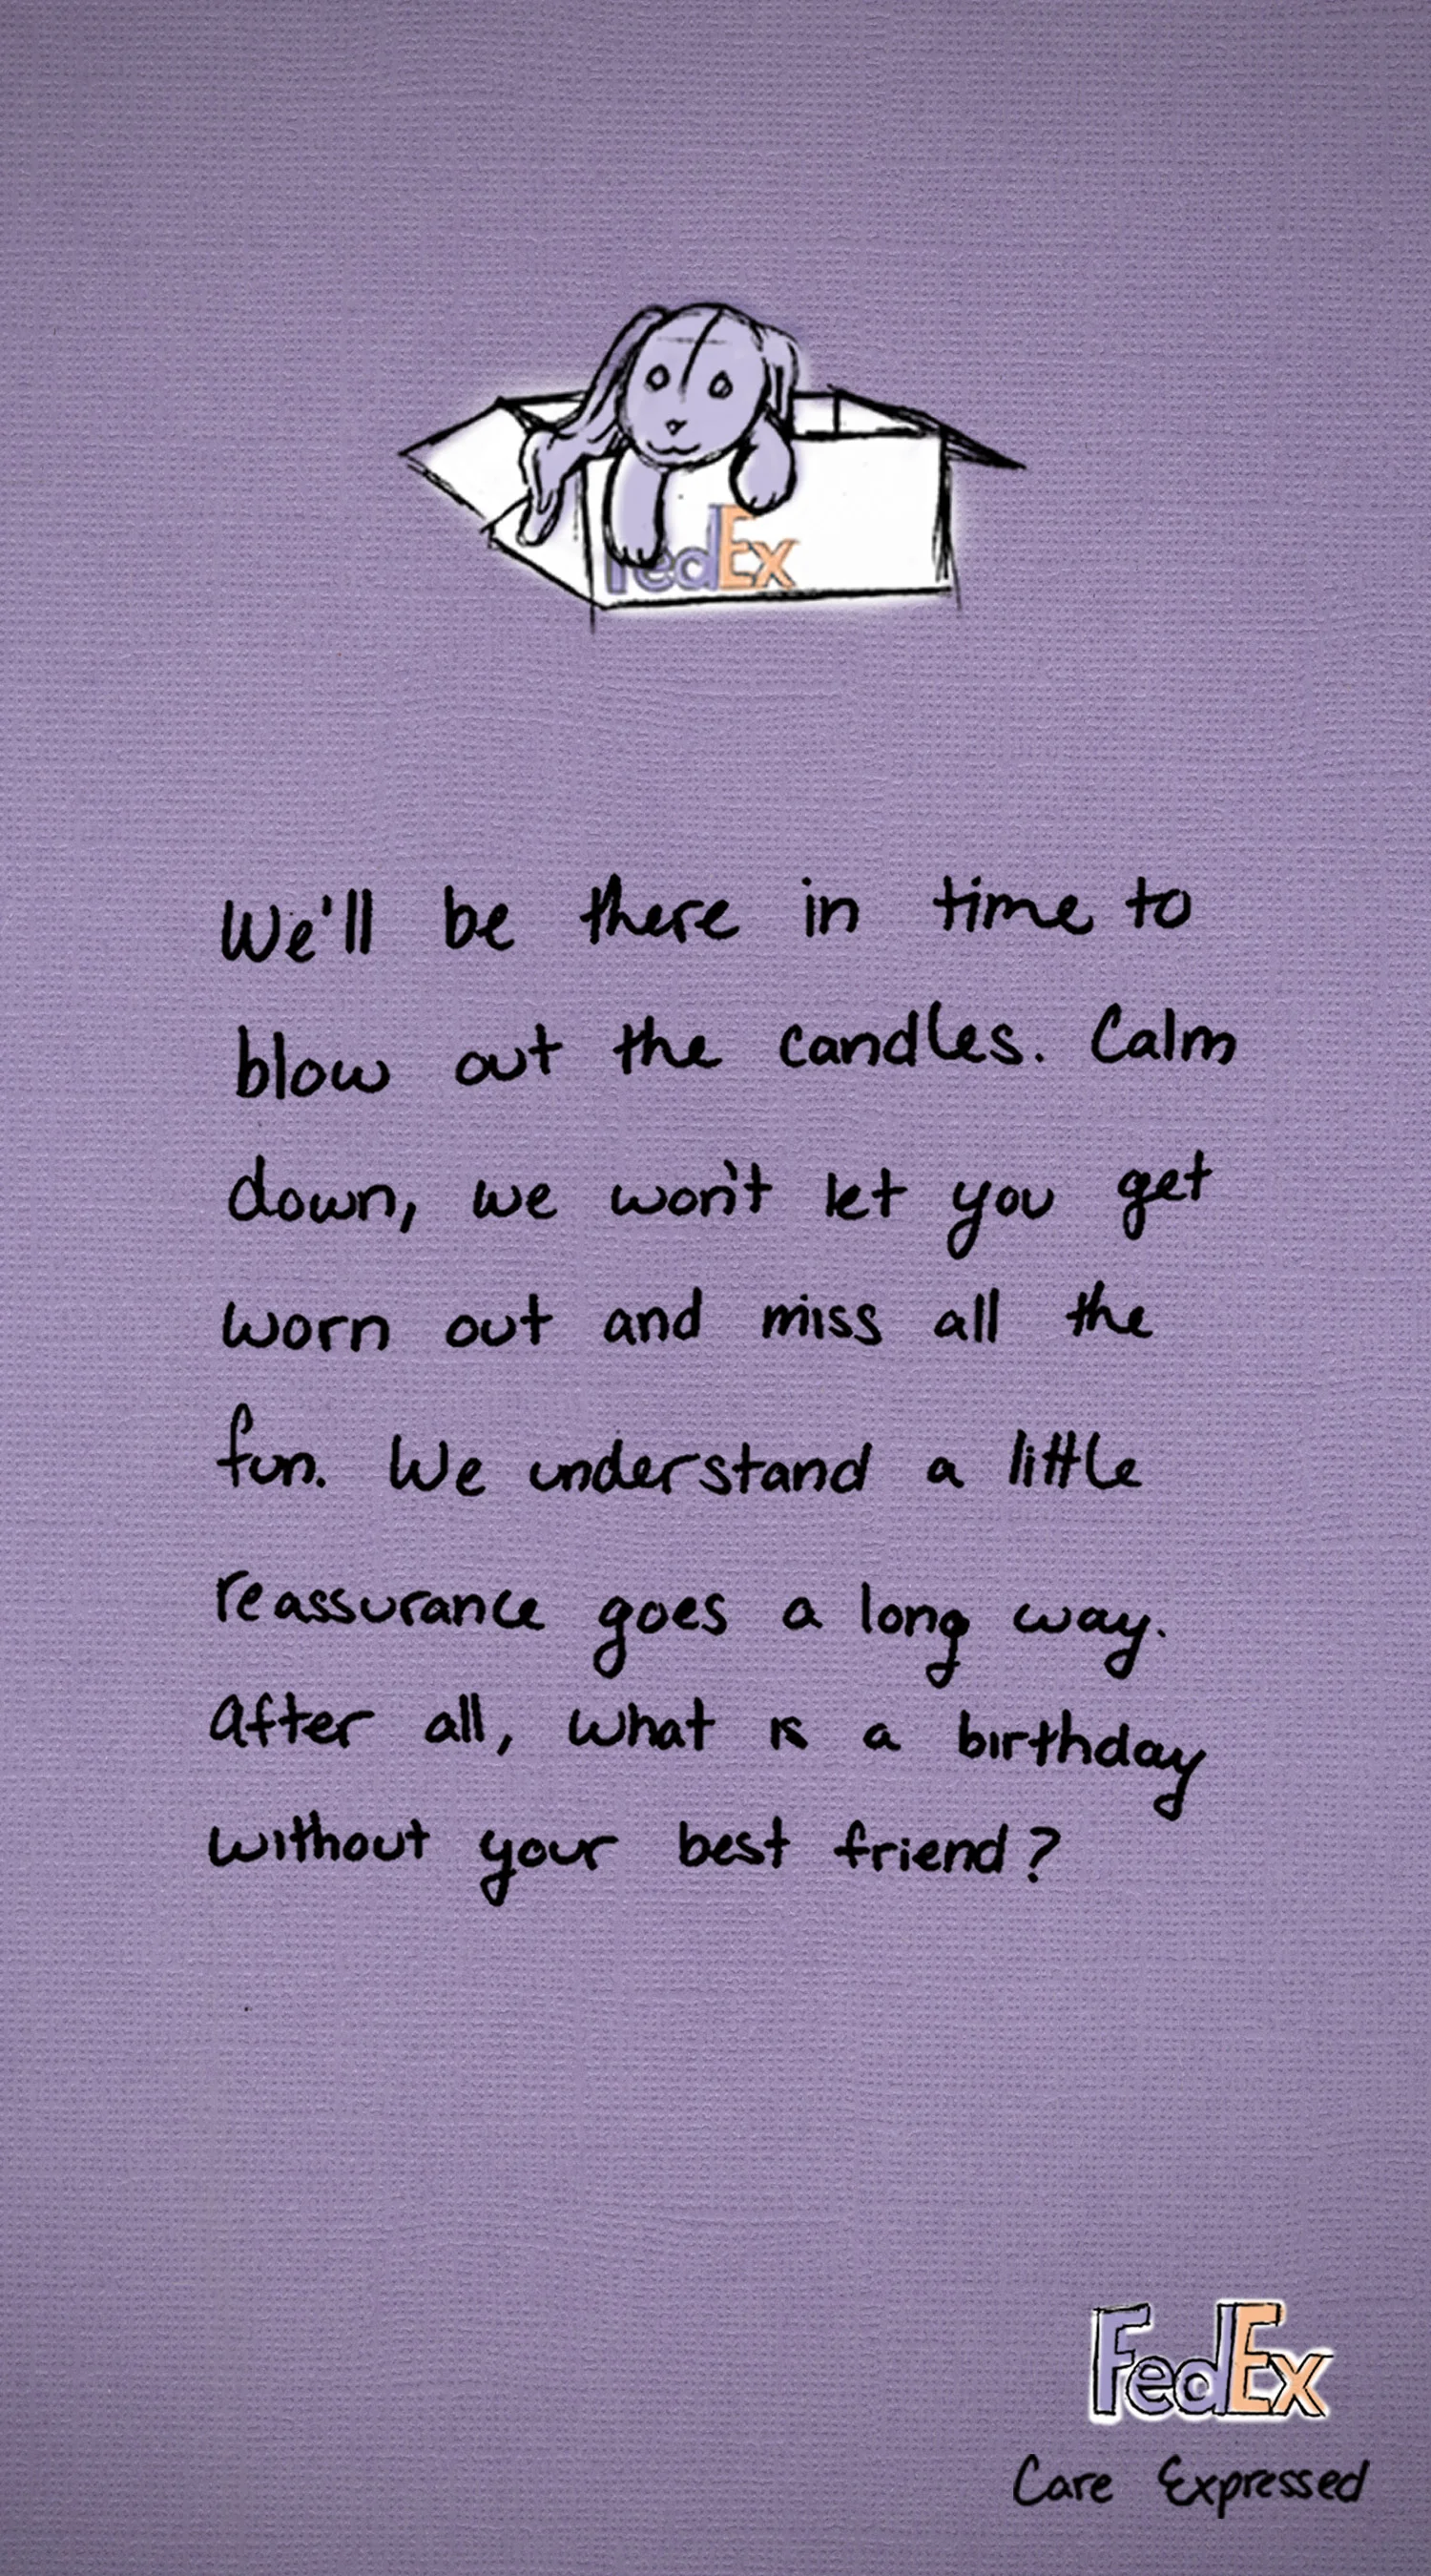 FedEx
We'll be there in time to
blow out the candles. Calm
down, we won't let you get
worn out and miss all the
fun. We understand a little
reassurance goes a long way.
After all, what is a birthday
without your best friend?
FedEx
Care Expressed